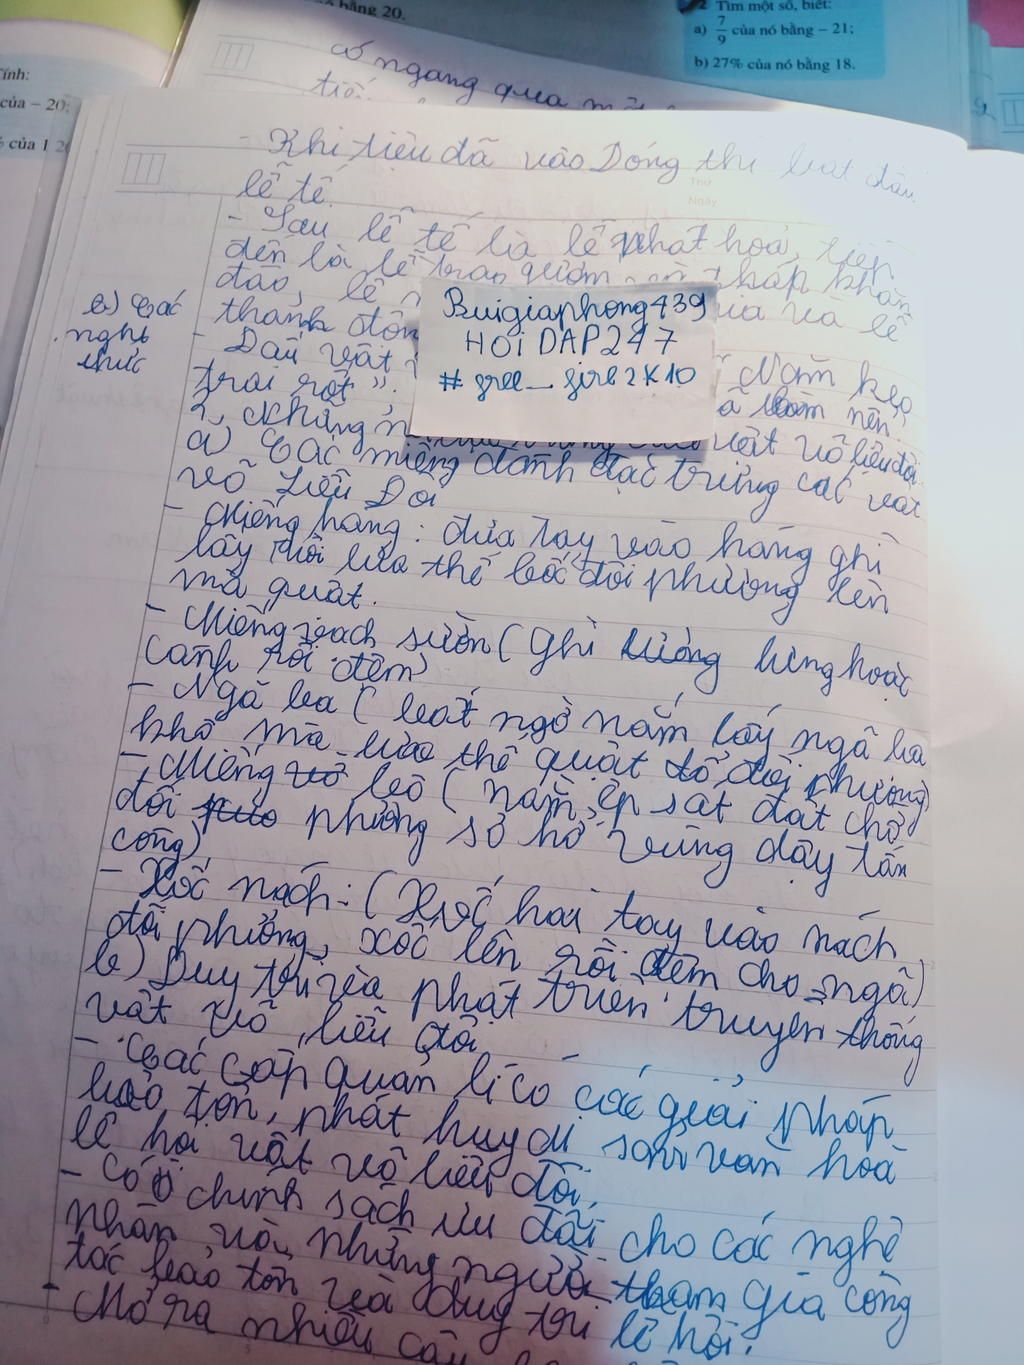 bằng 20.
2 Tìm một số, biết:
a) 7/9 của nó bằng – 21;
b) 27% của nó bằng 18.
Tính:
của – 20;
của 1
có ngang qua
Thứ
Ngày
- Khi tiêu đã vào Dóng thì bắt đầu
lễ tế.
- Sau lễ tế là lễ phát hoả, tiếp
đến là lễ trao gươm khăn
đào, lễ và lễ
thanh đôn
b) Các
nghi
thức
- Dấu vật Năm keo
trai rốt".
làm nên
2, Những vật võ liễu đôi
a) Các miếng đánh đặc trưng các vật
võ Liễu Đôi
- Miếng háng: đưa tay vào háng ghì
lấy rồi lựa thế bốc đối phương lên
mà quật.
- Miếng sườn (ghì lưng hoặc
cạnh rồi đệm)
- Ngã ba (bất ngờ nắm lấy ngã ba
khố mà lựa thế quật đổ đối phương)
- Miếng bò (nằm ép sát đất chờ
đối phương sơ hở vùng dậy tấn
công)
- Xốc nách: (Xốc hai tay vào nách
đối phương, xốc lên rồi đệm cho ngã)
b) Duy trì và phát triển truyền thống
vật võ liễu đôi
- Các cấp quản lí có các giải pháp
bảo tồn, phát huy di sản văn hoá
lễ hội vật võ liễu đôi.
- Có chính sách ưu đãi cho các nghệ
nhân và những người tham gia công
tác bảo tồn và duy trì lễ hội.
- Mở ra nhiều câu
Buigiaphong439
HOI DAP 247
# free_fire 2K10